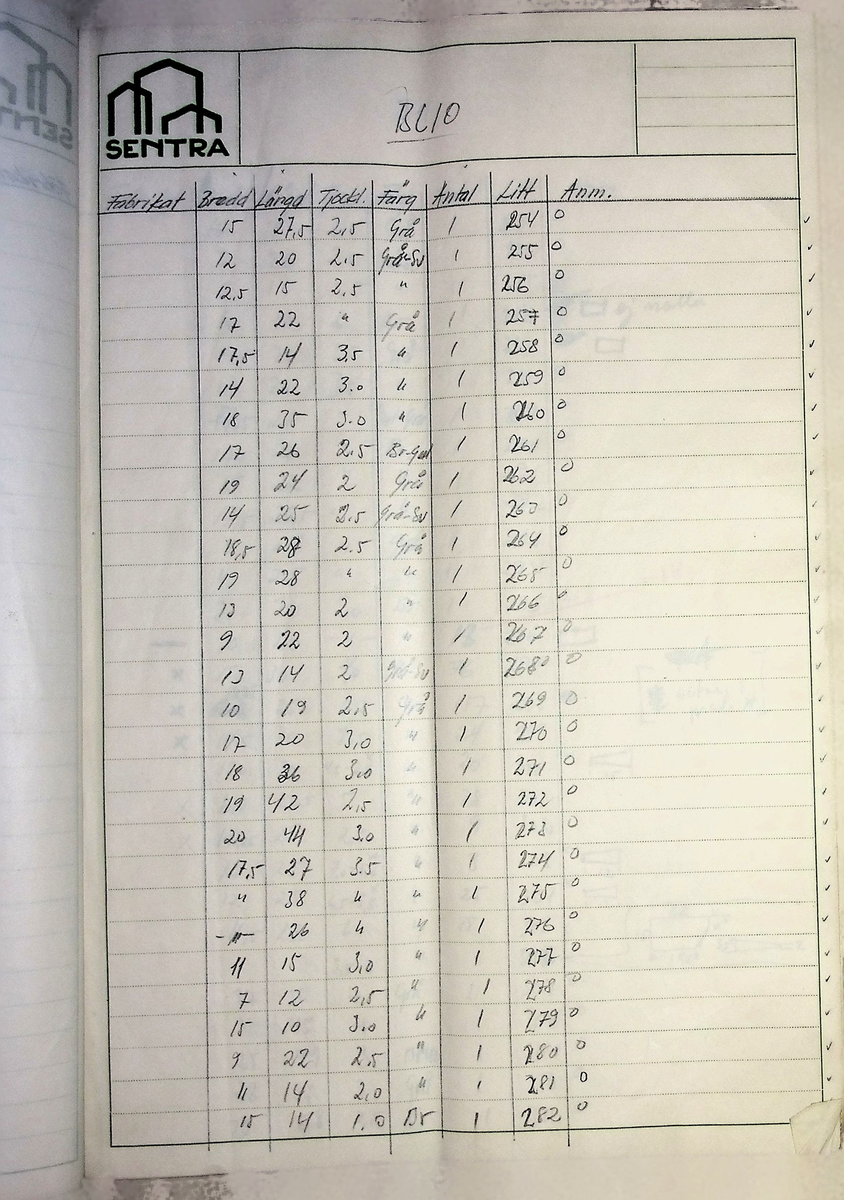 SENTRA
BL10
Fabrikat Bredd Längd Tjockl. Färg Antal Litt Anm.
15 27,5 2,5 Grå 1 254 o
12 20 2.5 Grå-Sv 1 255 o
12,5 15 2,5 " 1 256 o
17 22 " Grå 1 257 o
17,5 14 3,5 " 1 258 o
14 22 3.0 " 1 259 o
18 35 3.0 " 1 260 o
17 26 2.5 Br-Gul 1 261 o
19 24 2 Grå 1 262 o
14 25 2.5 Grå-Sv 1 263 o
18,5 28 2.5 Grå 1 264 o
19 28 " " 1 265 o
13 20 2 " 1 266 o
9 22 2 " 1 267 o
13 14 2 Grå-Sv 1 268 o
10 19 2,5 Grå 1 269 o
17 20 3,0 " 1 270 o
18 36 3,0 " 1 271 o
19 42 2,5 " 1 272 o
20 44 3.0 " 1 273 o
17,5 27 3.5 " 1 274 o
" 38 " " 1 275 o
-"- 26 " " 1 276 o
11 15 3,0 " 1 277 o
7 12 2,5 " 1 278 o
15 10 3.0 " 1 279 o
9 22 2.5 " 1 280 o
11 14 2,0 " 1 281 o
15 14 1,0 Br 1 282 o